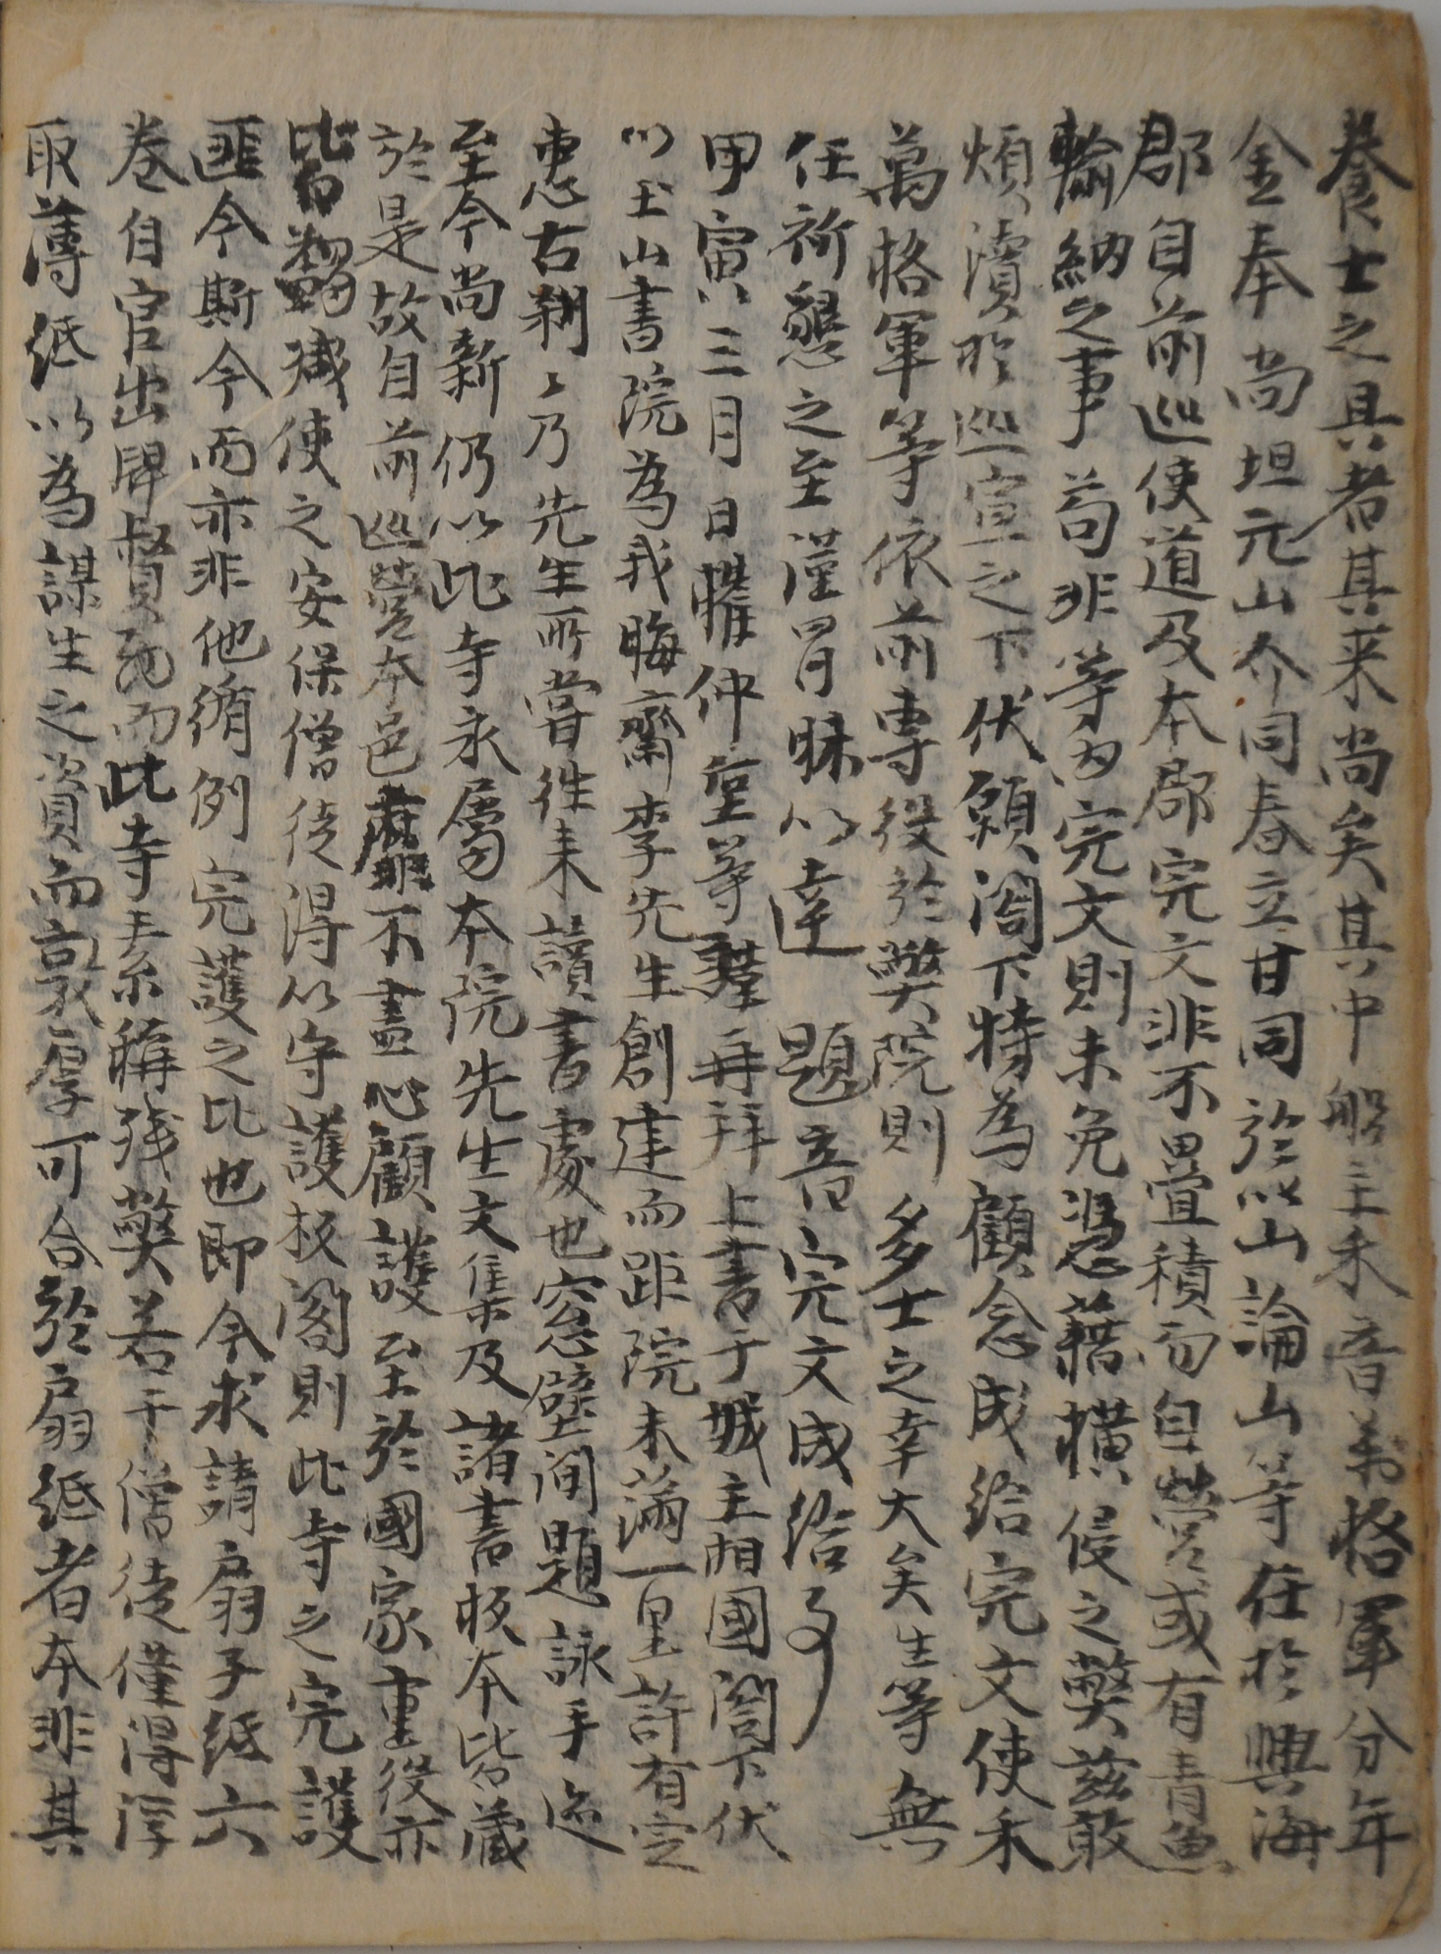 養士之具者其来尚矣其中船主禾音苐格軍分年
金奉尚坦元山介同春立甘同於以山論山等在於興海
郡自前巡使道及本郡完文非不疊積而自營或有青魚
輸納之事苟非等內完文則未免憑藉橫侵之弊玆敢
煩瀆於巡宣之下伏願閤下特為顧念成給完文使禾
萬格軍等依前專役於弊院則多士之幸大矣生等無
任祈懇之至謹冐昧以達 題音完文成給事
甲寅三月日權仲堂等再拜上書于城主相國閤下伏
以玉山書院為我晦齋李先生創建而距院未滿一里許有定
惠古刹々乃先生所嘗往来讀書處也窓壁间題詠手迹
至今尚新仍以此寺永屬本院先生文集及諸書板本皆藏
於是故自前巡營本邑靡不盡心顧護至於國家重役亦
皆蠲减使之安保僧徒得以守護板閣則此寺之完護
匪今斯今而亦非他循例完護之比也即今求請扇子紙六
卷自官出牌督責而此寺素稱殘弊若干僧徒僅得浮
取薄紙以為謀生之資而敦厚可合於扇紙者本非其